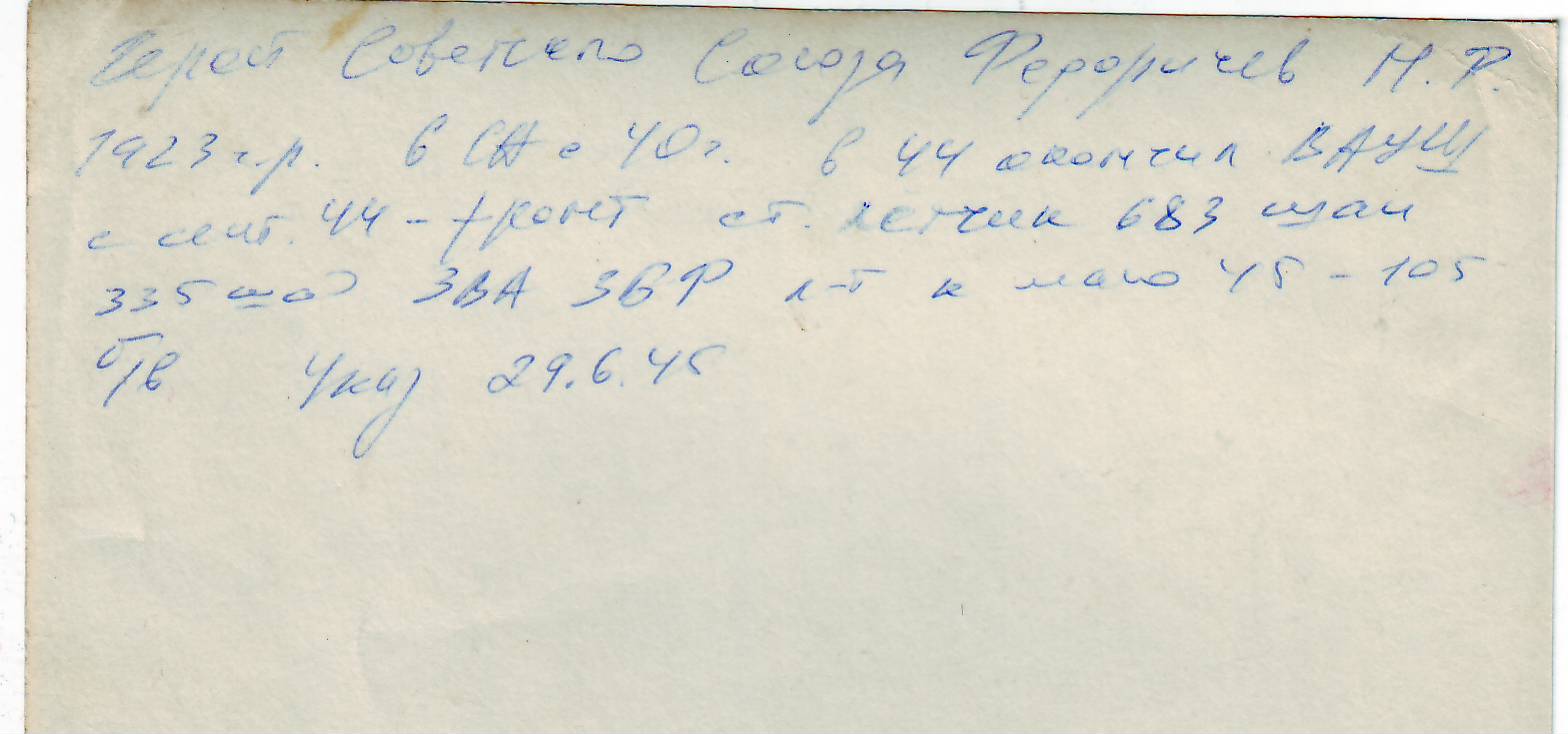 Герой Советского Союза Федоричев Н. Р.
1923 г.р. в СА с 40г. в 44 окончил ВАУШ
с сент. 44 - фронт ст. летчик 683 шап
335 шад 3ВА 3БФ л-т к маю 45 - 105
б/в Указ 29.6.45